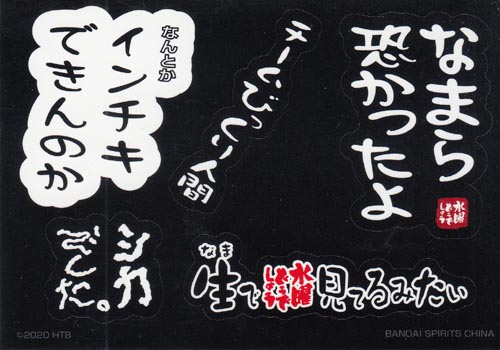 なまら
恐かったよ
水曜どうでしょう
びっくり人間
なんとか
インチキ
できんのか
シカ
でした。
なま
生で水曜どうでしょう見てるみたい
©2020 HTB
BANDAI SPIRITS CHINA